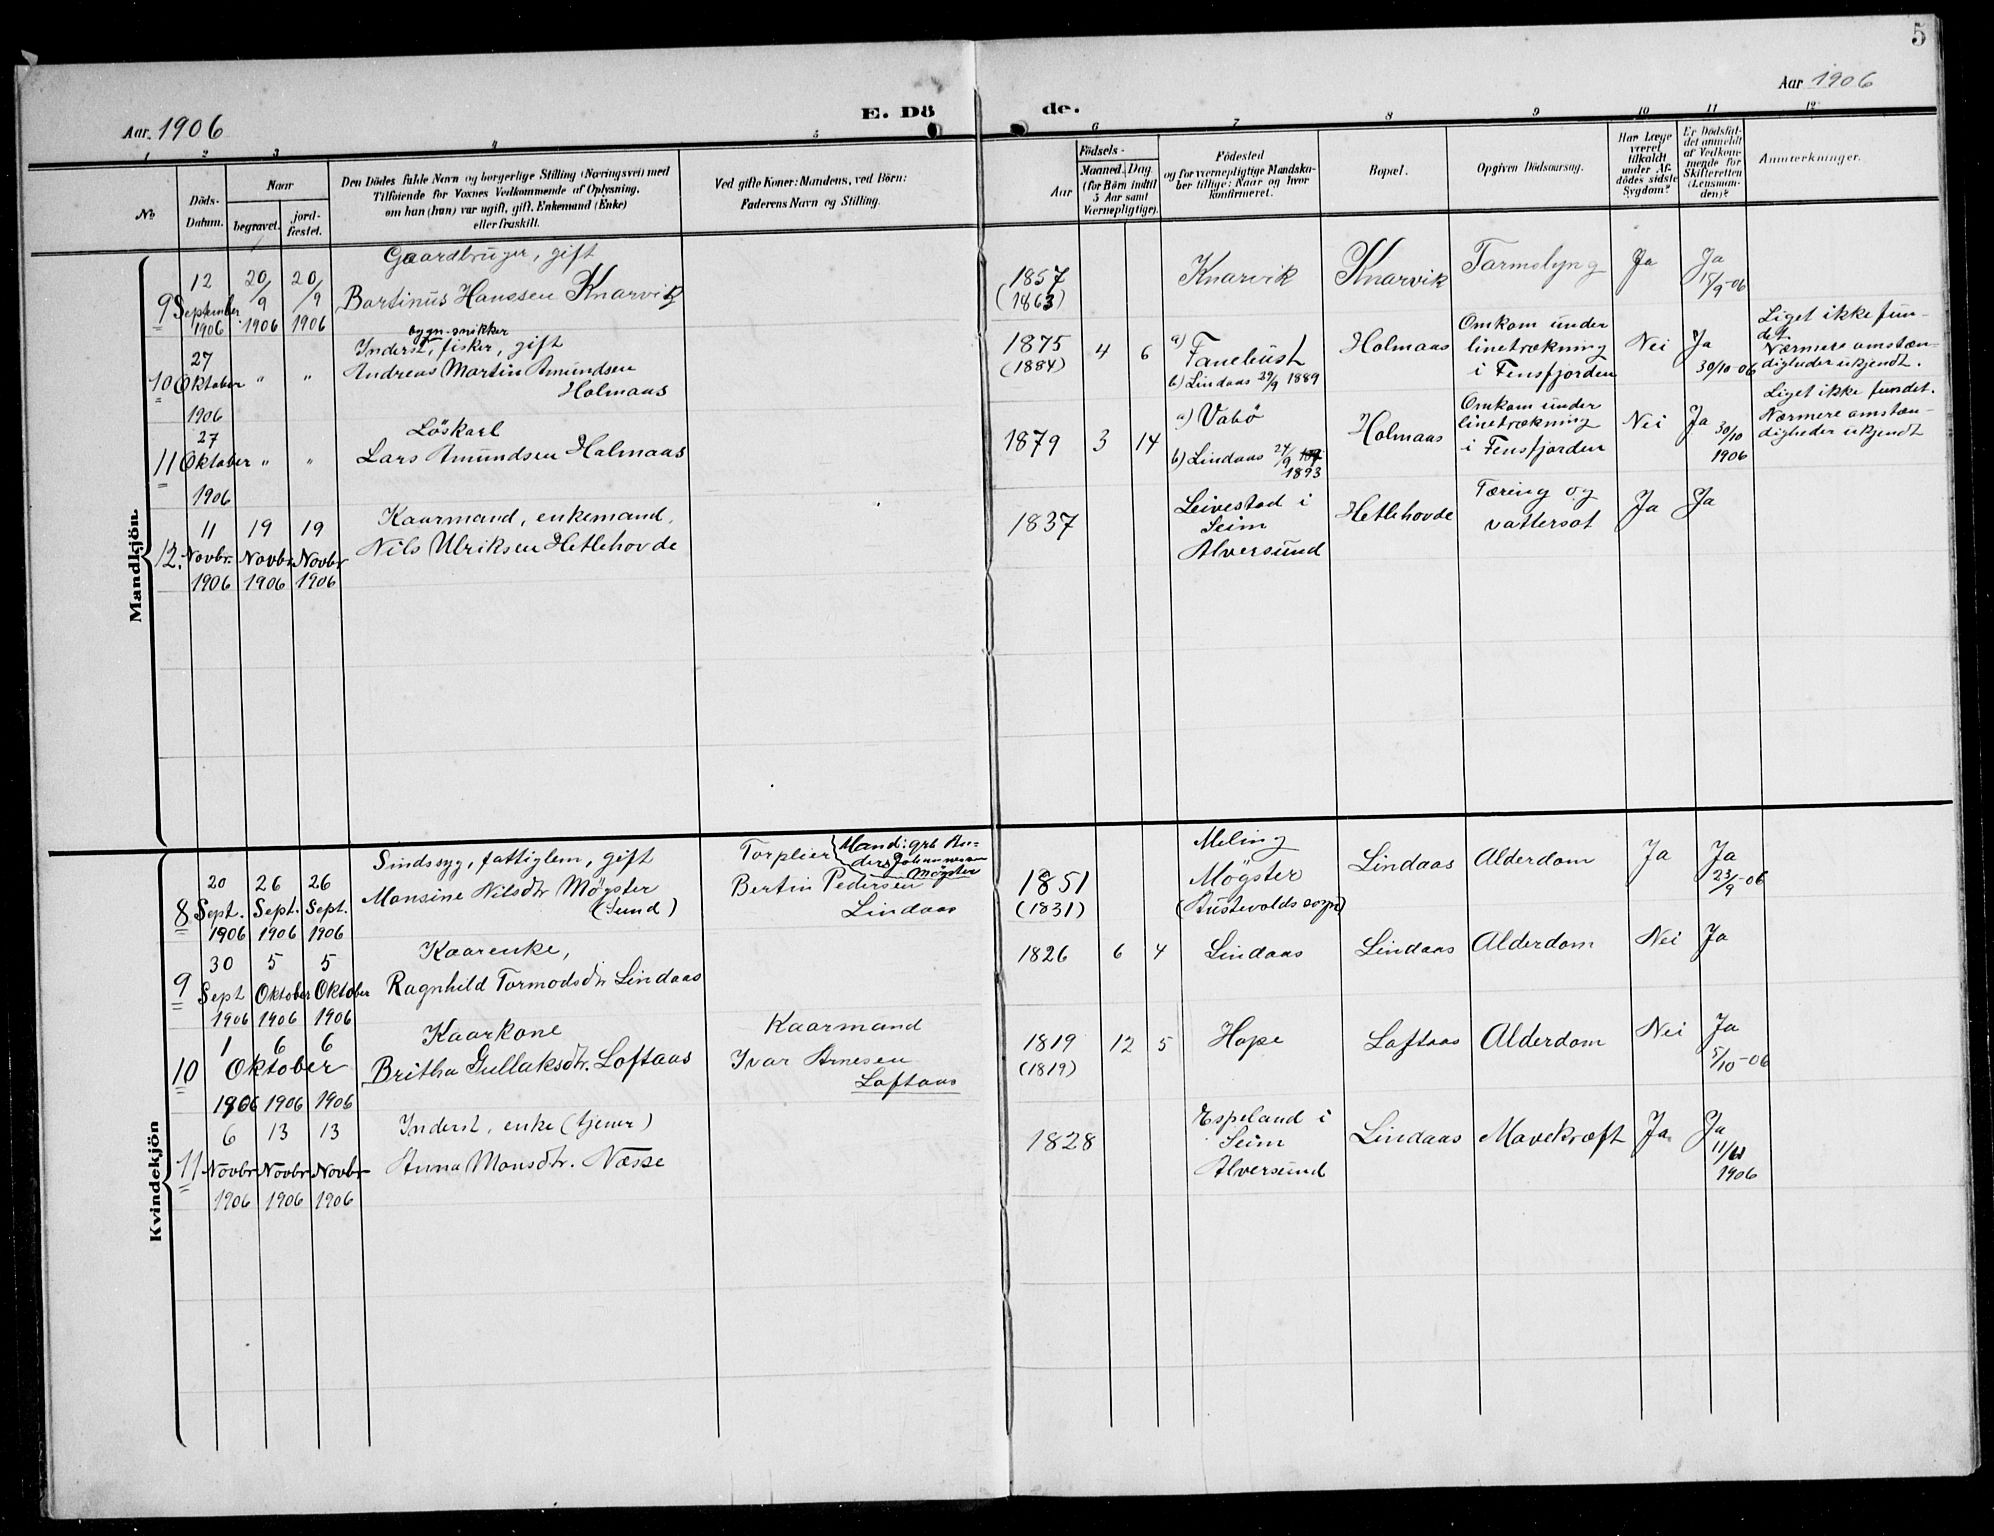 5
Aar 1906
E. Dö de.
Aar. 1906
1 2 3 4 5 6 7 8 9 10 11 12
No
Döds-
Datum.
Naar
begravet.
jord-
fæstet.
Den Dödes fulde Navn og borgerlige Stilling (Næringsvei) med
Tilföiende for Voxnes Vedkommende af Oplysning,
om han (hun) var ugift, gift, Enkemand (Enke)
eller fraskilt.
Ved gifte Koner: Mandens, ved Börn:
Faderens Navn og Stilling.
Födsels-
Aar
Maaned. Dag
(for Börn indtil
5 Aar samt
Værnepligtige).
Födested
og for værnepligtige Mandska-
ber tillige: Naar og hvor
konfirmeret.
Bopæl.
Opgiven Dödsaarsag.
Har Læge
været
tilkaldt
under Af-
dödes sidste
Sygdom?
Er Dödsfal-
det anmeldt
af Vedkom-
mende for
Skifteretten
(Lensman-
den)?
Anmærkninger.
Mandkjön.
9
12
September
1906
20/9
1906
20/9
1906
Gaardbruger, gift
Bertinus Hanssen Knarvik
1857
(1863)
Knarvik
Knarvik
Tarmslyng
Ja
Ja
15/9-06
10
27
Oktober
1906
" "
bygn.snikker
Inderst, fisker, gift
Andreas Martin Amundsen
Holmaas
1875
(1884)
4 6
a)
Fanebust
b) Lindaas 29/9 1889
Holmaas
Omkom under
linetrækning
i Fensfjorden
Nei
Ja
30/10-06
Liget ikke fun-
det
Nærmere omstæn-
digheder ukjendt.
11
27
Oktober
1906
" "
Löskarl
Lars Amundsen Holmaas
1879
3 14
a) Vabö
b) Lindaas 24/9
1893
Holmaas
Omkom under
linetrækning
i Fensfjorden
Nei
Ja
30/10
1906
Liget ikke fundet.
Nærmere omstæn-
digheder ukjendt
12.
11
Novbr.
1906
19
Novbr
1906
19
Novbr
1906
Kaarmand, enkemand,
Nils Ulriksen Hetlehovde
1837
Leivestad i
Seim
Alversund
Hetlehovde
Tæring og
vattersot
Ja
Ja
Kvindekjön
8
20
Sept.
1906
26
Sept.
1906
26
Sept.
1906
Sindssyg, fattiglem, gift
Monsine Nilsdtr Møgster
(Sund)
Forpleier
Bertin Pedersen
Lindaas
Mand: grb An-
ders Johannessen
Møgster
1851
(1831)
Meling
Møgster
(Austevolds sogn)
Lindaas
Alderdom
Ja
Ja
23/9-06
9
30
Sept
1906
5
Oktober
1906
5
Oktober
1906
Kaarenke,
Ragnhild Tormodsdtr Lindaas
1826
6 4
Lindaas
Lindaas
Alderdom
Nei
Ja
10
1 6 6
Oktober
1906 1906 1906
Kaarkone
Britha Gullaksdtr. Loftaas
Kaarmand
Ivar Arnesen
Loftaas
1819
(1819)
12 5
Hope
Loftaas
Alderdom
Nei
Ja
5/10-06
11
6
Novbr
1906
13
Novbr
1906
13
Novbr
1906
Inderst, enke (tjener)
Anna Monsdtr. Næsse
1828
Espeland i
Seim
Alversund
Lindaas
Mavekræft
Ja.
Ja
1906